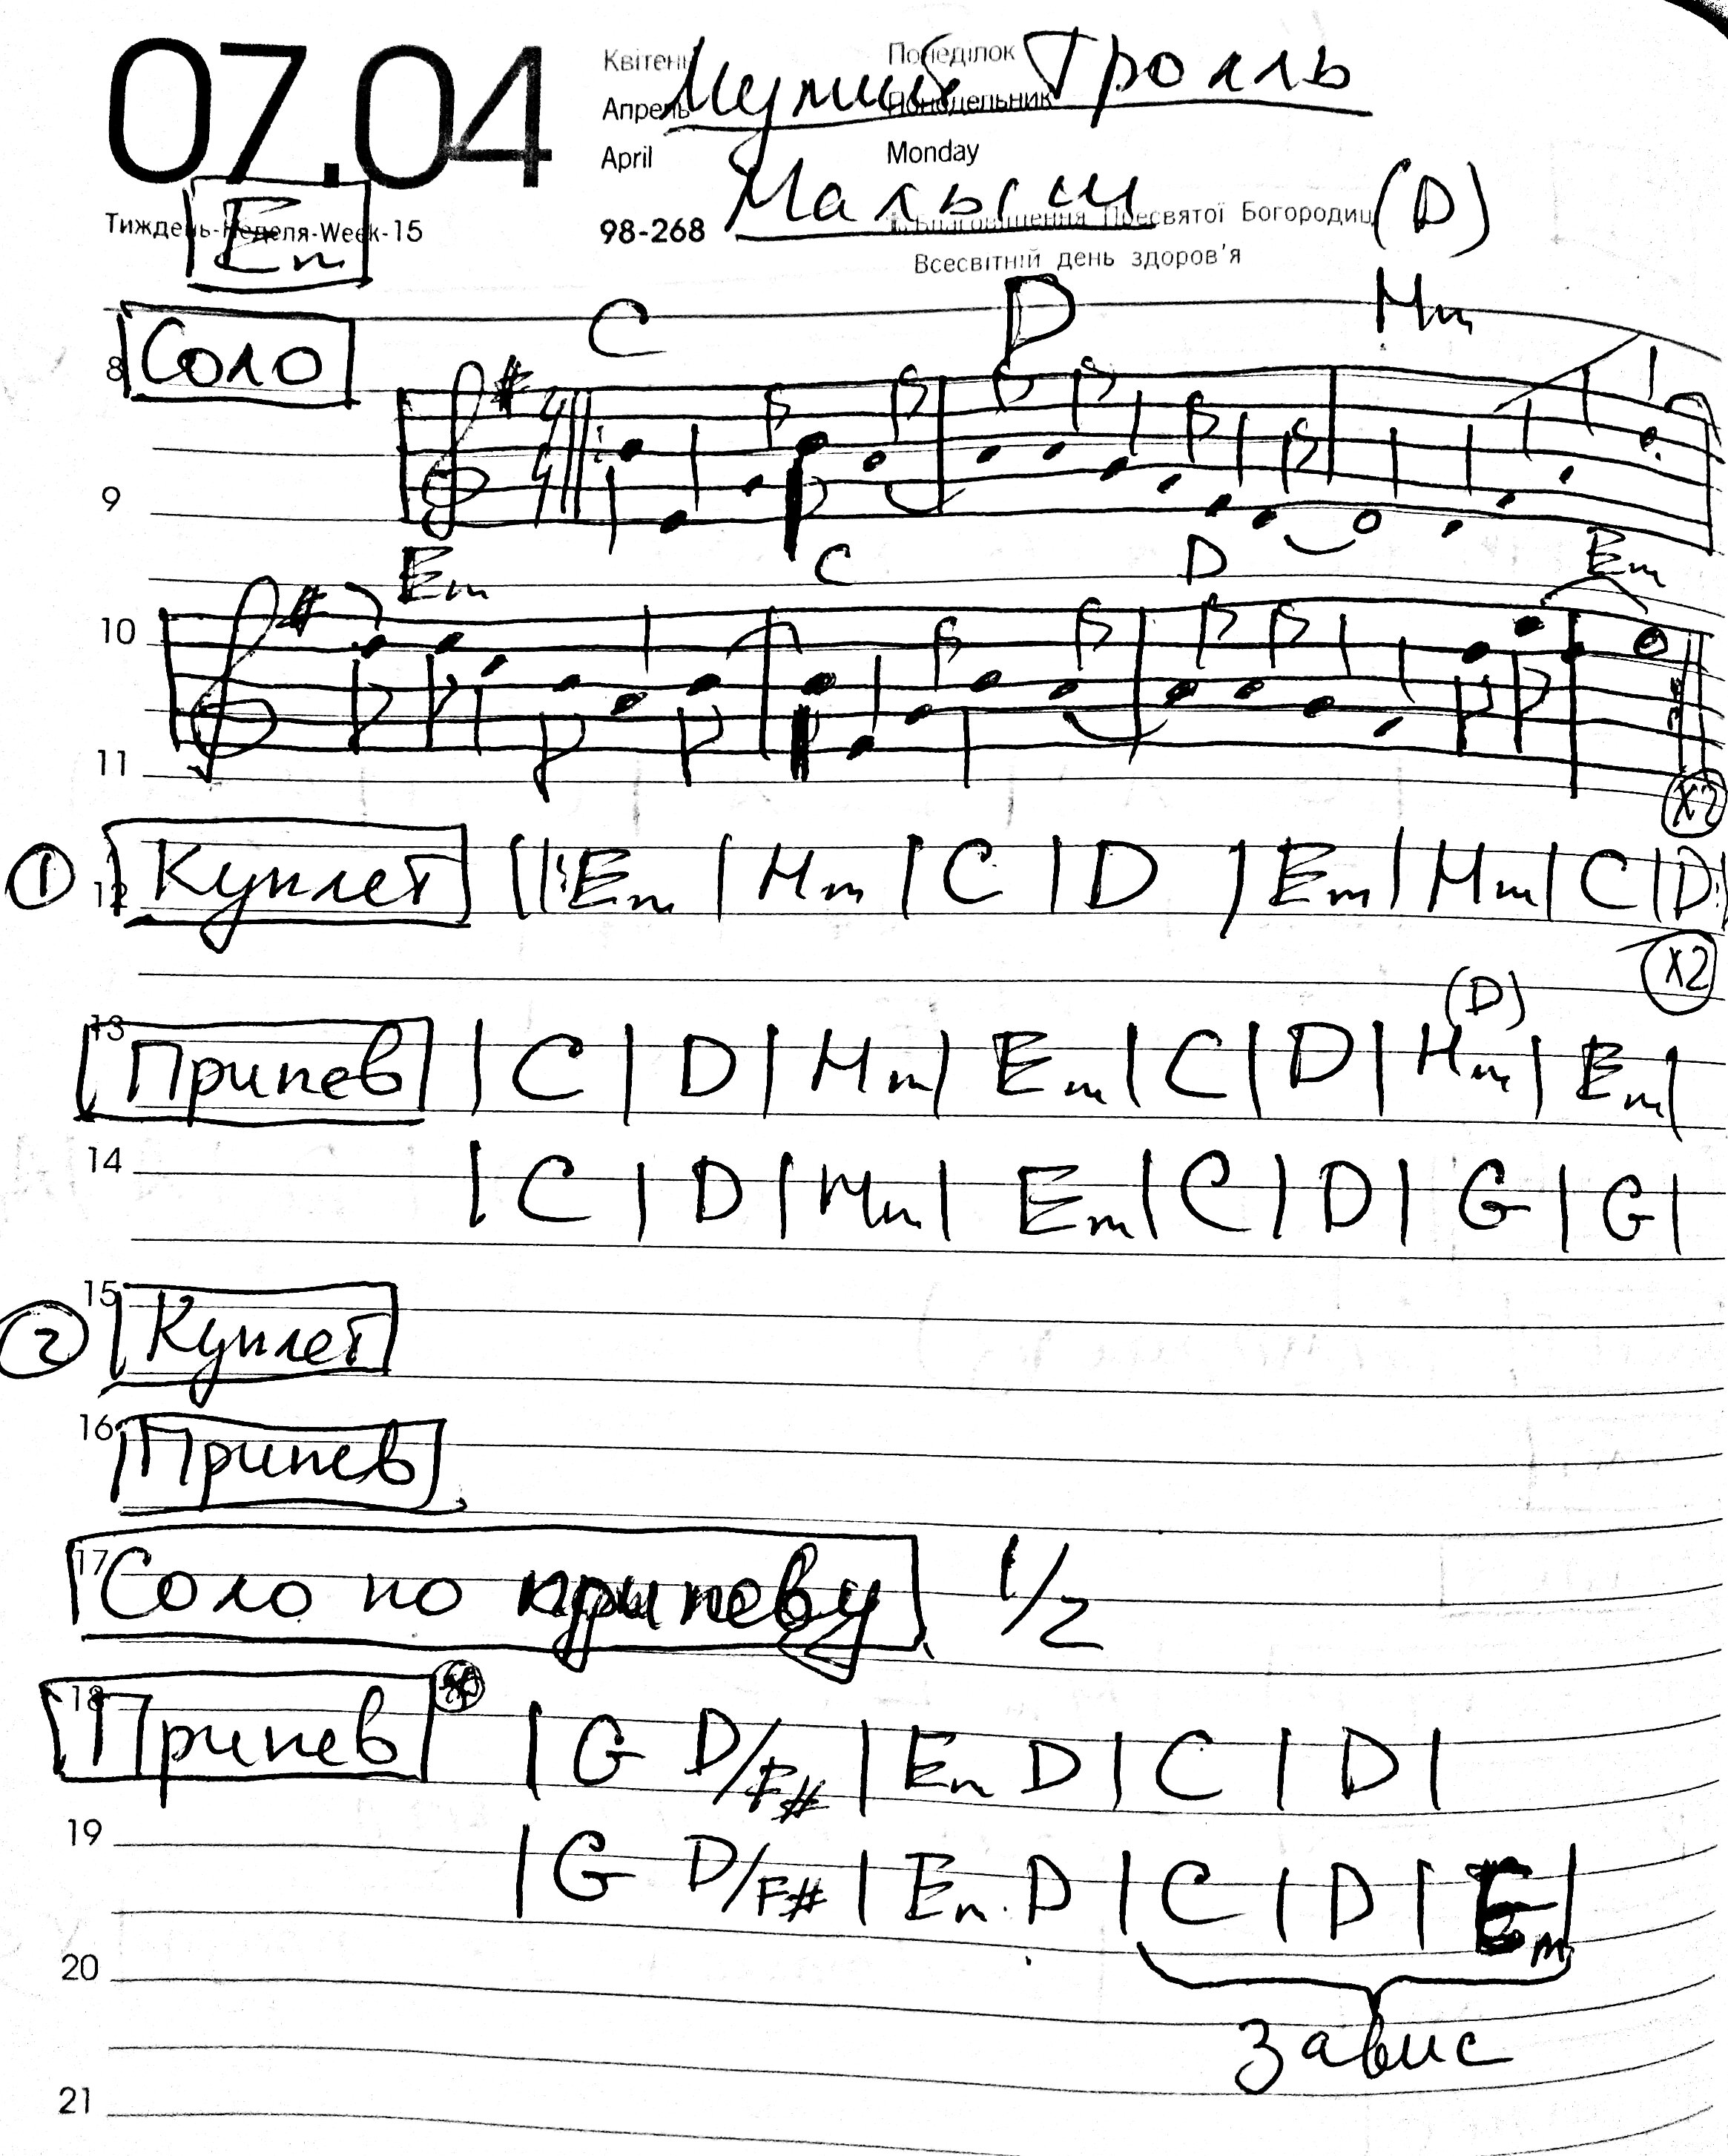 07.04
Квітень Понеділок
Мумий Тролль
Апрель Понедельник
April Monday
Малыш (D)
Тиждень-Неделя-Week-15 98-268 Благовіщення Пресвятої Богородиці
Em
Всесвітній день здоров'я
C D Hm
8 Соло
4
4
9
Em C D Em
10
11
x2
1 12 Куплет ||: Em | Hm | C | D | Em | Hm | C | D :|
x2
(D)
13 Припев | C | D | Hm | Em | C | D | Hm | Em |
14 | C | D | Hm | Em | C | D | G | G |
15
2 Куплет
16 Припев
17 Соло по припеву 1/2
18 Припев | G D/F# | Em D | C | D |
19 | G D/F# | Em D | C | D | Em |
20
завис
21